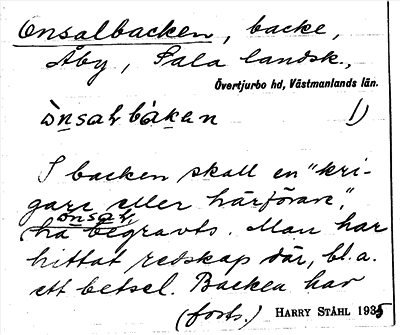 Onsalbacken, backe,
Åby, Sala landsk.,
Övertjurbo hd, Västmanlands län.
ònsalbákan 1)
I backen skall en "kri-
gare eller härförare",
onsal,
ha begravts. Man har
hittat redskap där, bl.a.
ett betsel. Backen har
(forts.) HARRY STÅHL 1935